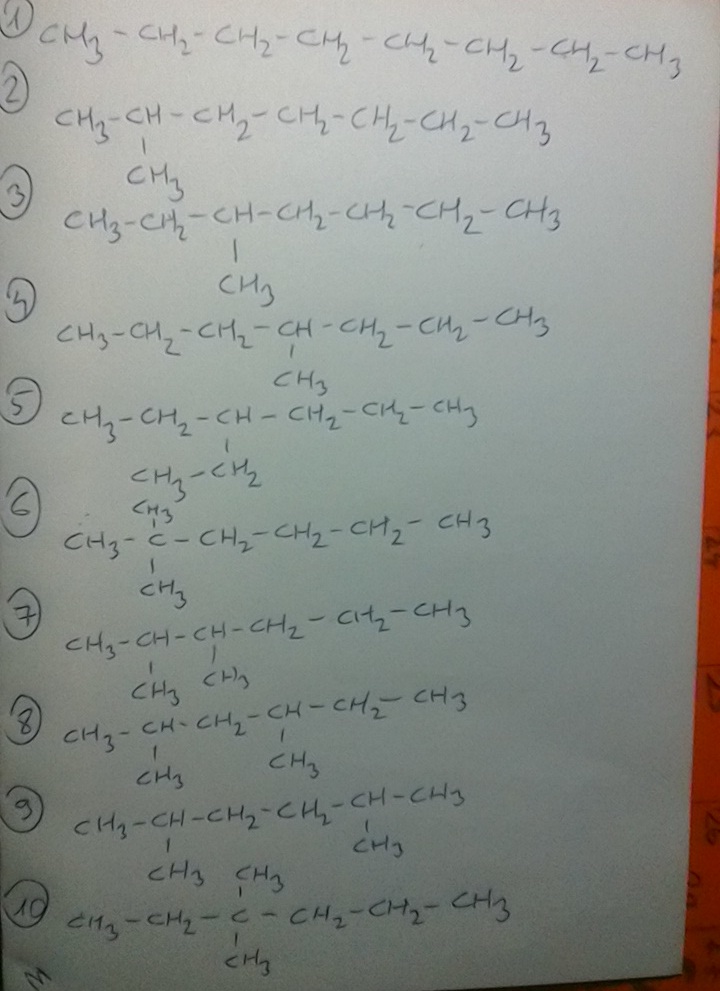 1 CH3-CH2-CH2-CH2-CH2-CH2-CH2-CH3
2
CH3-CH-CH2-CH2-CH2-CH2-CH3
CH3
3 CH3-CH2-CH-CH2-CH2-CH2-CH3
CH3
4
CH3-CH2-CH2-CH-CH2-CH2-CH3
CH3
5 CH3-CH2-CH-CH2-CH2-CH3
CH3-CH2
6 CH3
CH3-C-CH2-CH2-CH2-CH3
CH3
7 CH3-CH-CH-CH2-CH2-CH3
CH3 CH3
8 CH3-CH-CH2-CH-CH2-CH3
CH3 CH3
9 CH3-CH-CH2-CH2-CH-CH3
CH3 CH3
CH3
10 CH3-CH2-C-CH2-CH2-CH3
CH3